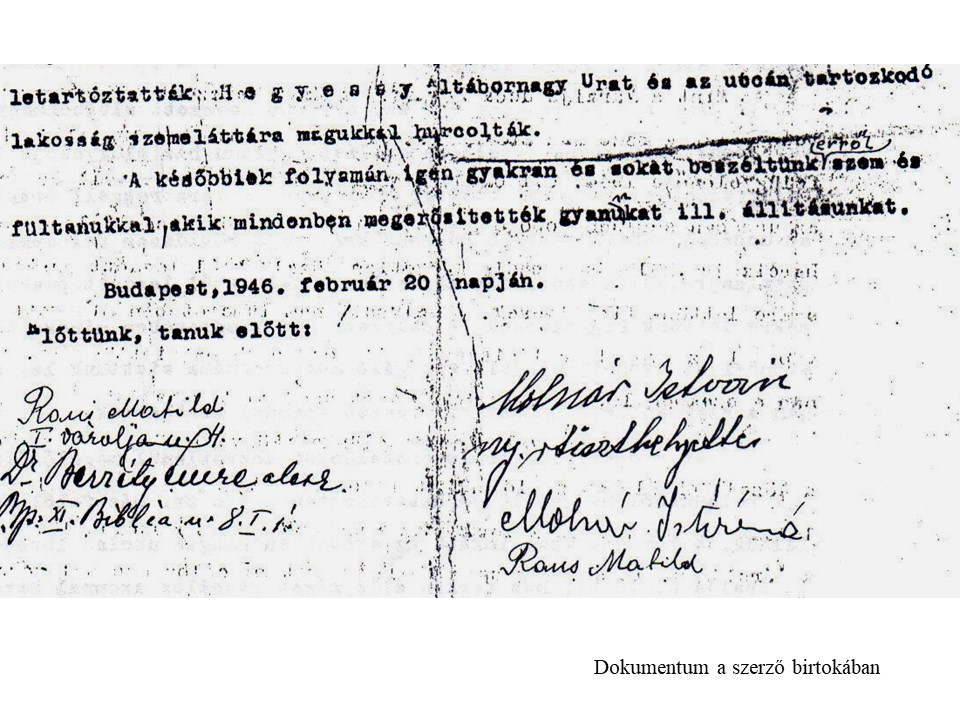 letartóztatták H e g y e s s y Altábornagy Urat és az utcán tartozkodó
lakosság szemeláttára magukkal hurcolták.
erről
A későbbiek folyamán igen gyakran és sokat beszéltünk szem és
fültanukkal,akik mindenben megerősitették gyanúnkat ill. állitásunkat.
Budapest,1946. február 20 napján.
Előttünk, tanuk előtt:
Molnár István
Raus Matild
I. Váralja u. 4.
ny. tiszthelyettes
Dr. Imre
Bp. XI. Biblia u. 8. I.
Molnár Istvánné
Raus Matild
Dokumentum a szerző birtokában